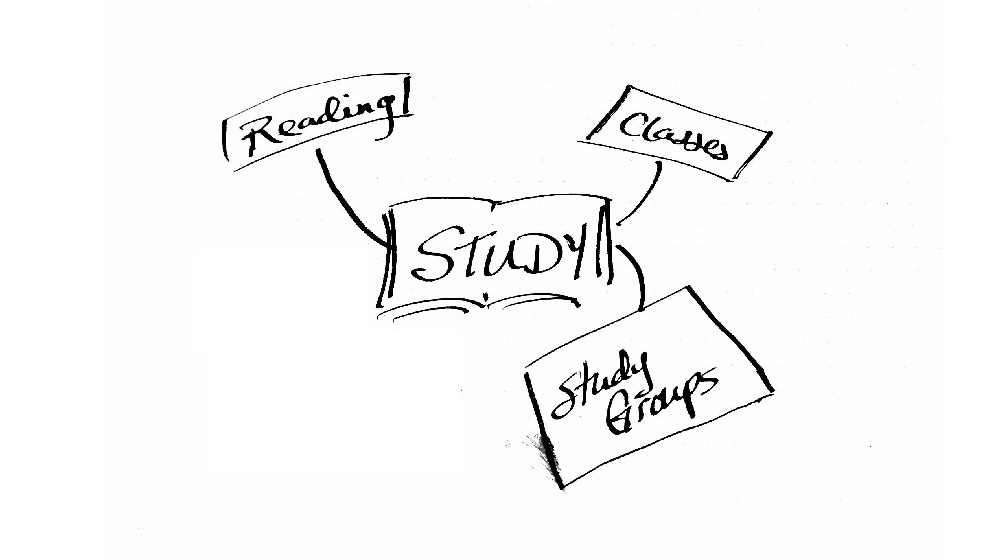 Reading
Classes
STUDY
Study
Groups